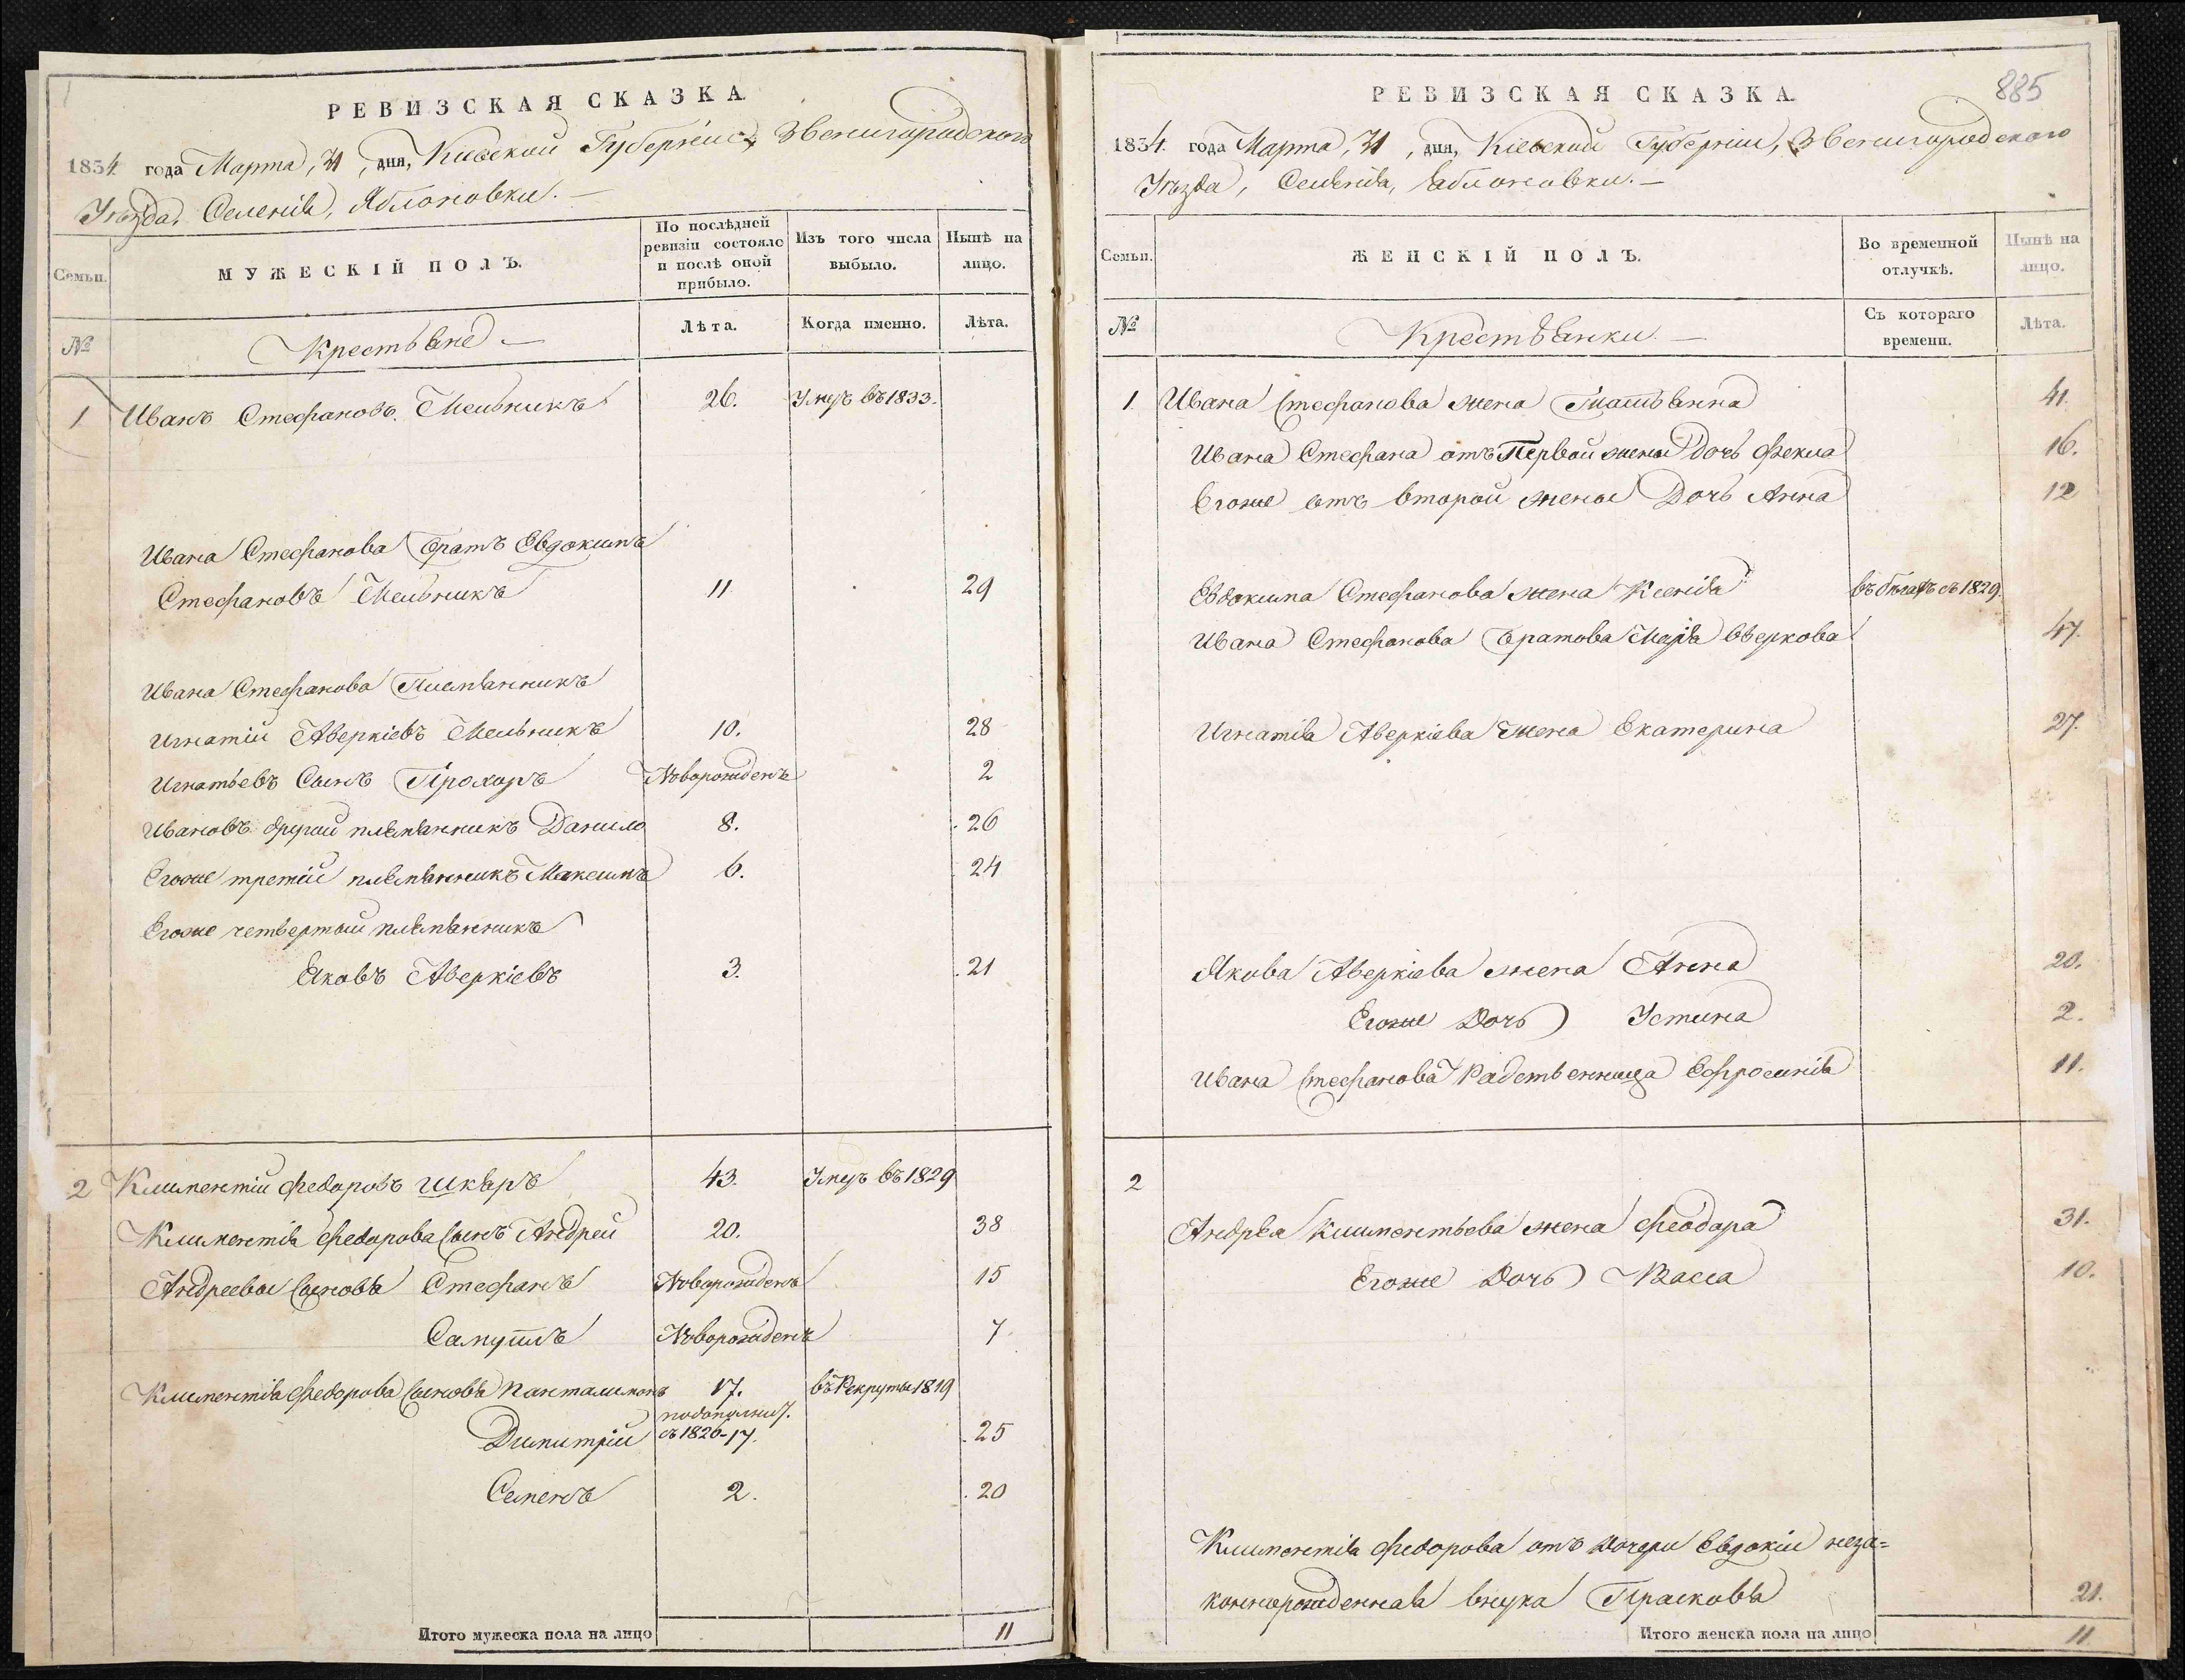 РЕВИЗСКАЯ СКАЗКА.
1834 года Марта, 31, дня, Киевской Губернии, Звенигородского
Уѣзда, Селенія, Яблоновки.
Семьи.
МУЖЕСКІЙ ПОЛЪ.
По послѣдней ревизіи состояло и послѣ оной прибыло.
Изъ того числа выбыло.
Нынѣ на лицо.
№
Крестьяне
Лѣта.
Когда именно.
Лѣта.
1 Иванъ Стефановъ Мельникъ 26. Умеръ въ 1833.
Ивана Стефанова братъ Евдокимъ
Стефановъ Мельникъ 11 29
Ивана Стефанова Племянникъ
Игнатій Аверкіевъ Мельникъ 10. 28
Игнатьевъ Сынъ Прохоръ Новорожденъ 2
Ивановъ другий племянникъ Данило 8. 26
Егоже третій племянникъ Максимъ 6. 24
Егоже четвертый племянникъ
Яковъ Аверкіевъ 3. 21
2 Климентій Федоровъ Шкяръ 43. Умеръ въ 1829
Климентія Федорова Сынъ Андрей 20. 38
Андреевы Сыновья Стефанъ Новорожденъ 15
Самуилъ Новорожденъ 7
Климентія Федорова Сыновья Панталимонъ 17. въ Рекруты 1819
Димитрій съ 1820-17. 25
Семенъ 2. 20
Итого мужеска пола на лицо 11
885
РЕВИЗСКАЯ СКАЗКА.
1834. года Марта, 31, дня, Кіевской Губерніи, Звенигородского
Уѣзда, Селенія, Яблоновки.
Семьи.
ЖЕНСКІЙ ПОЛЪ.
Во временной отлучкѣ.
Нынѣ на лицо.
№
Крестьянки.
Съ котораго времени.
Лѣта.
1. Ивана Стефанова жена Татьянна 41.
Ивана Стефана отъ Первой жены Дочь Фекла 16.
Егоже отъ второй жены Дочь Анна 12
Евдокима Стефанова жена Ксенія въ бѣгахъ съ 1829.
Ивана Стефанова братова Марія Оверкова 47.
Игнатія Аверкіева жена Екатерина 27.
Якова Аверкіева жена Анна 20.
Егоже Дочь Устина 2.
Ивана Стефанова Радственница Ефросинія 11.
2
Андрея Климентьева жена Феодора 31.
Егоже Дочь Васса 10.
Климентія Федорова отъ Дочери Евдокіи неза=
коннорожденная внука Прасковья 21.
Итого женска пола на лицо 11